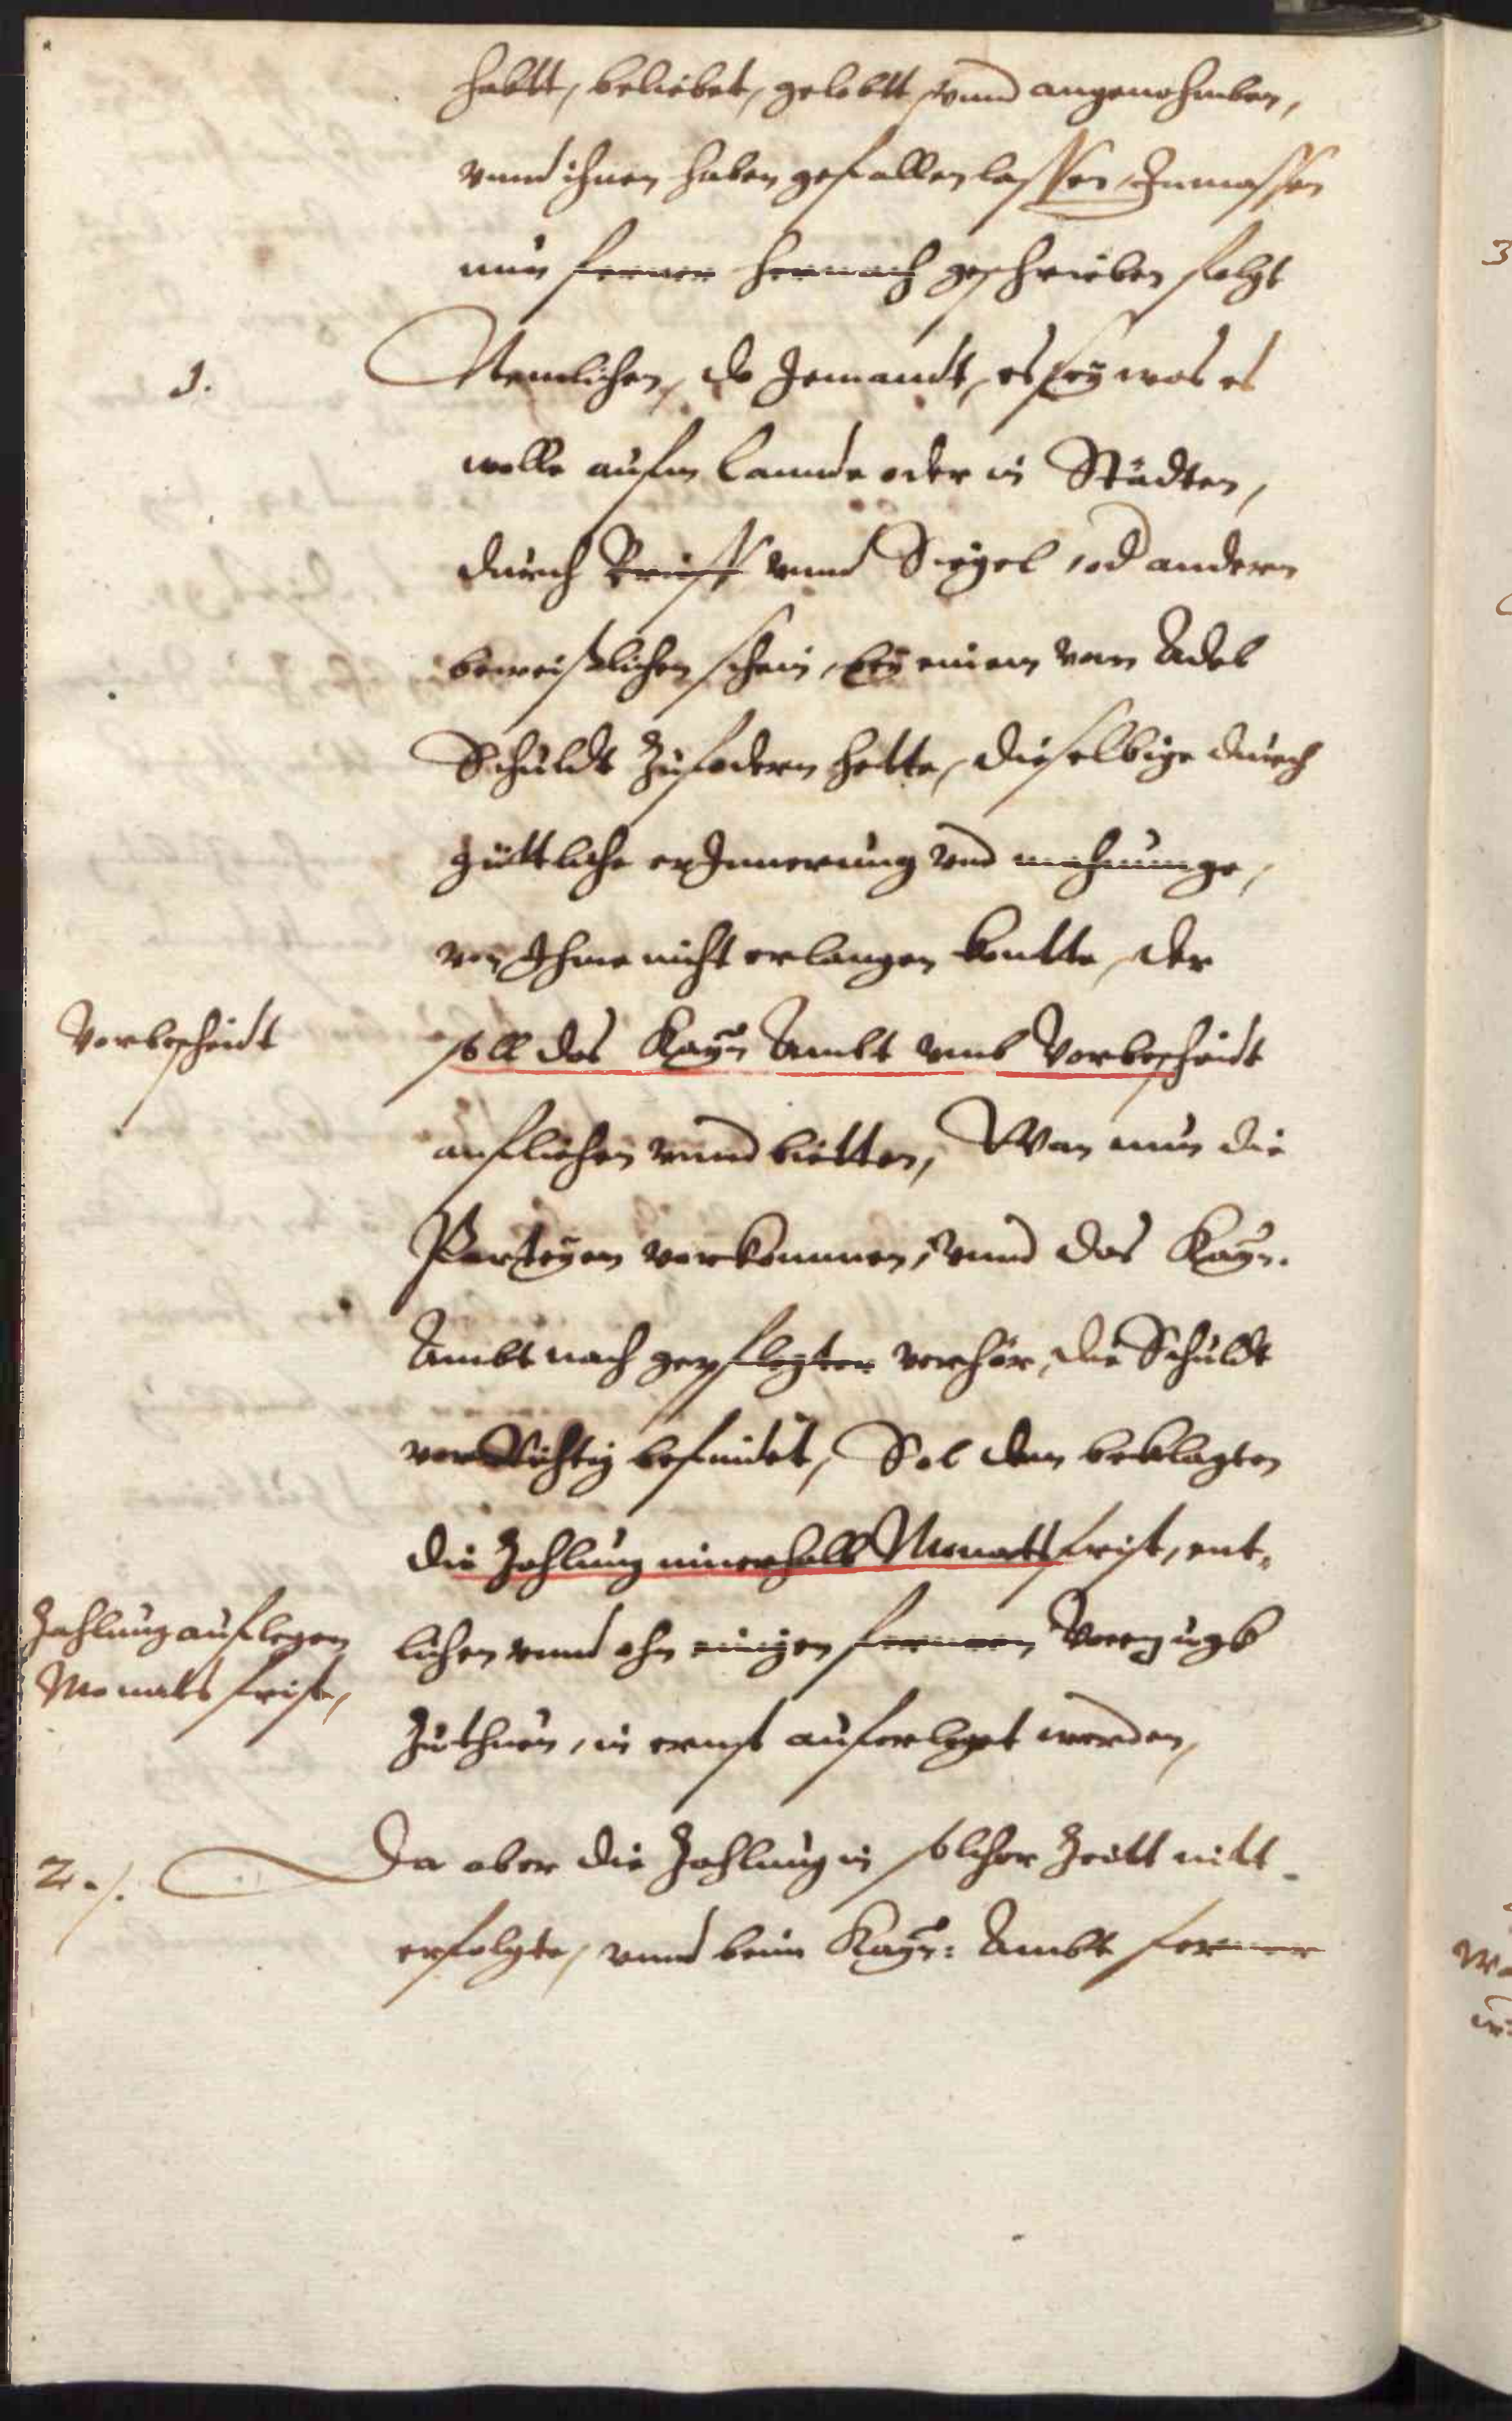 habtt, beliebet, gelobtt, vnnd angenohmben,
vnnd ihnen haben gefallen lassen, Inmassen
nun ferner hernach geschrieben folgt
1.
Nemlichen, do Jemandt, es sey was es
wolle aufm Lannde oder in Städten,
durch Brieff vnnd Siegel, od andern
beweißlichen schein, bey einem vom Adel
Schuldt zufodern hette, dieselbige durch
güttliche erInnerung vnd mahnunge,
von Ihme nicht erlangen kontte, der
Vorbescheidt
soll das Kayn Ambt vmb Vorbescheidt
anfliehen vnnd bietten, Wan nun die
Parteyen vorkommen, vnnd das Kayn.
Ambt nach gepflegter verhör, die Schuldt
vor Richtig befindet, Sol dem beklagten
die Zahlung innerhalb Monatsfrist, ent-
Zahlung auflegen
Monats frist,
lichen vnnd ohn einigen fernern Vorzugk
Zuthun, in ernst auferleget werden,
2./.
Da aber die Zahlung in solcher Zeitt nitt
erfolgte, vnnd beim Kayn: Ambt ferner